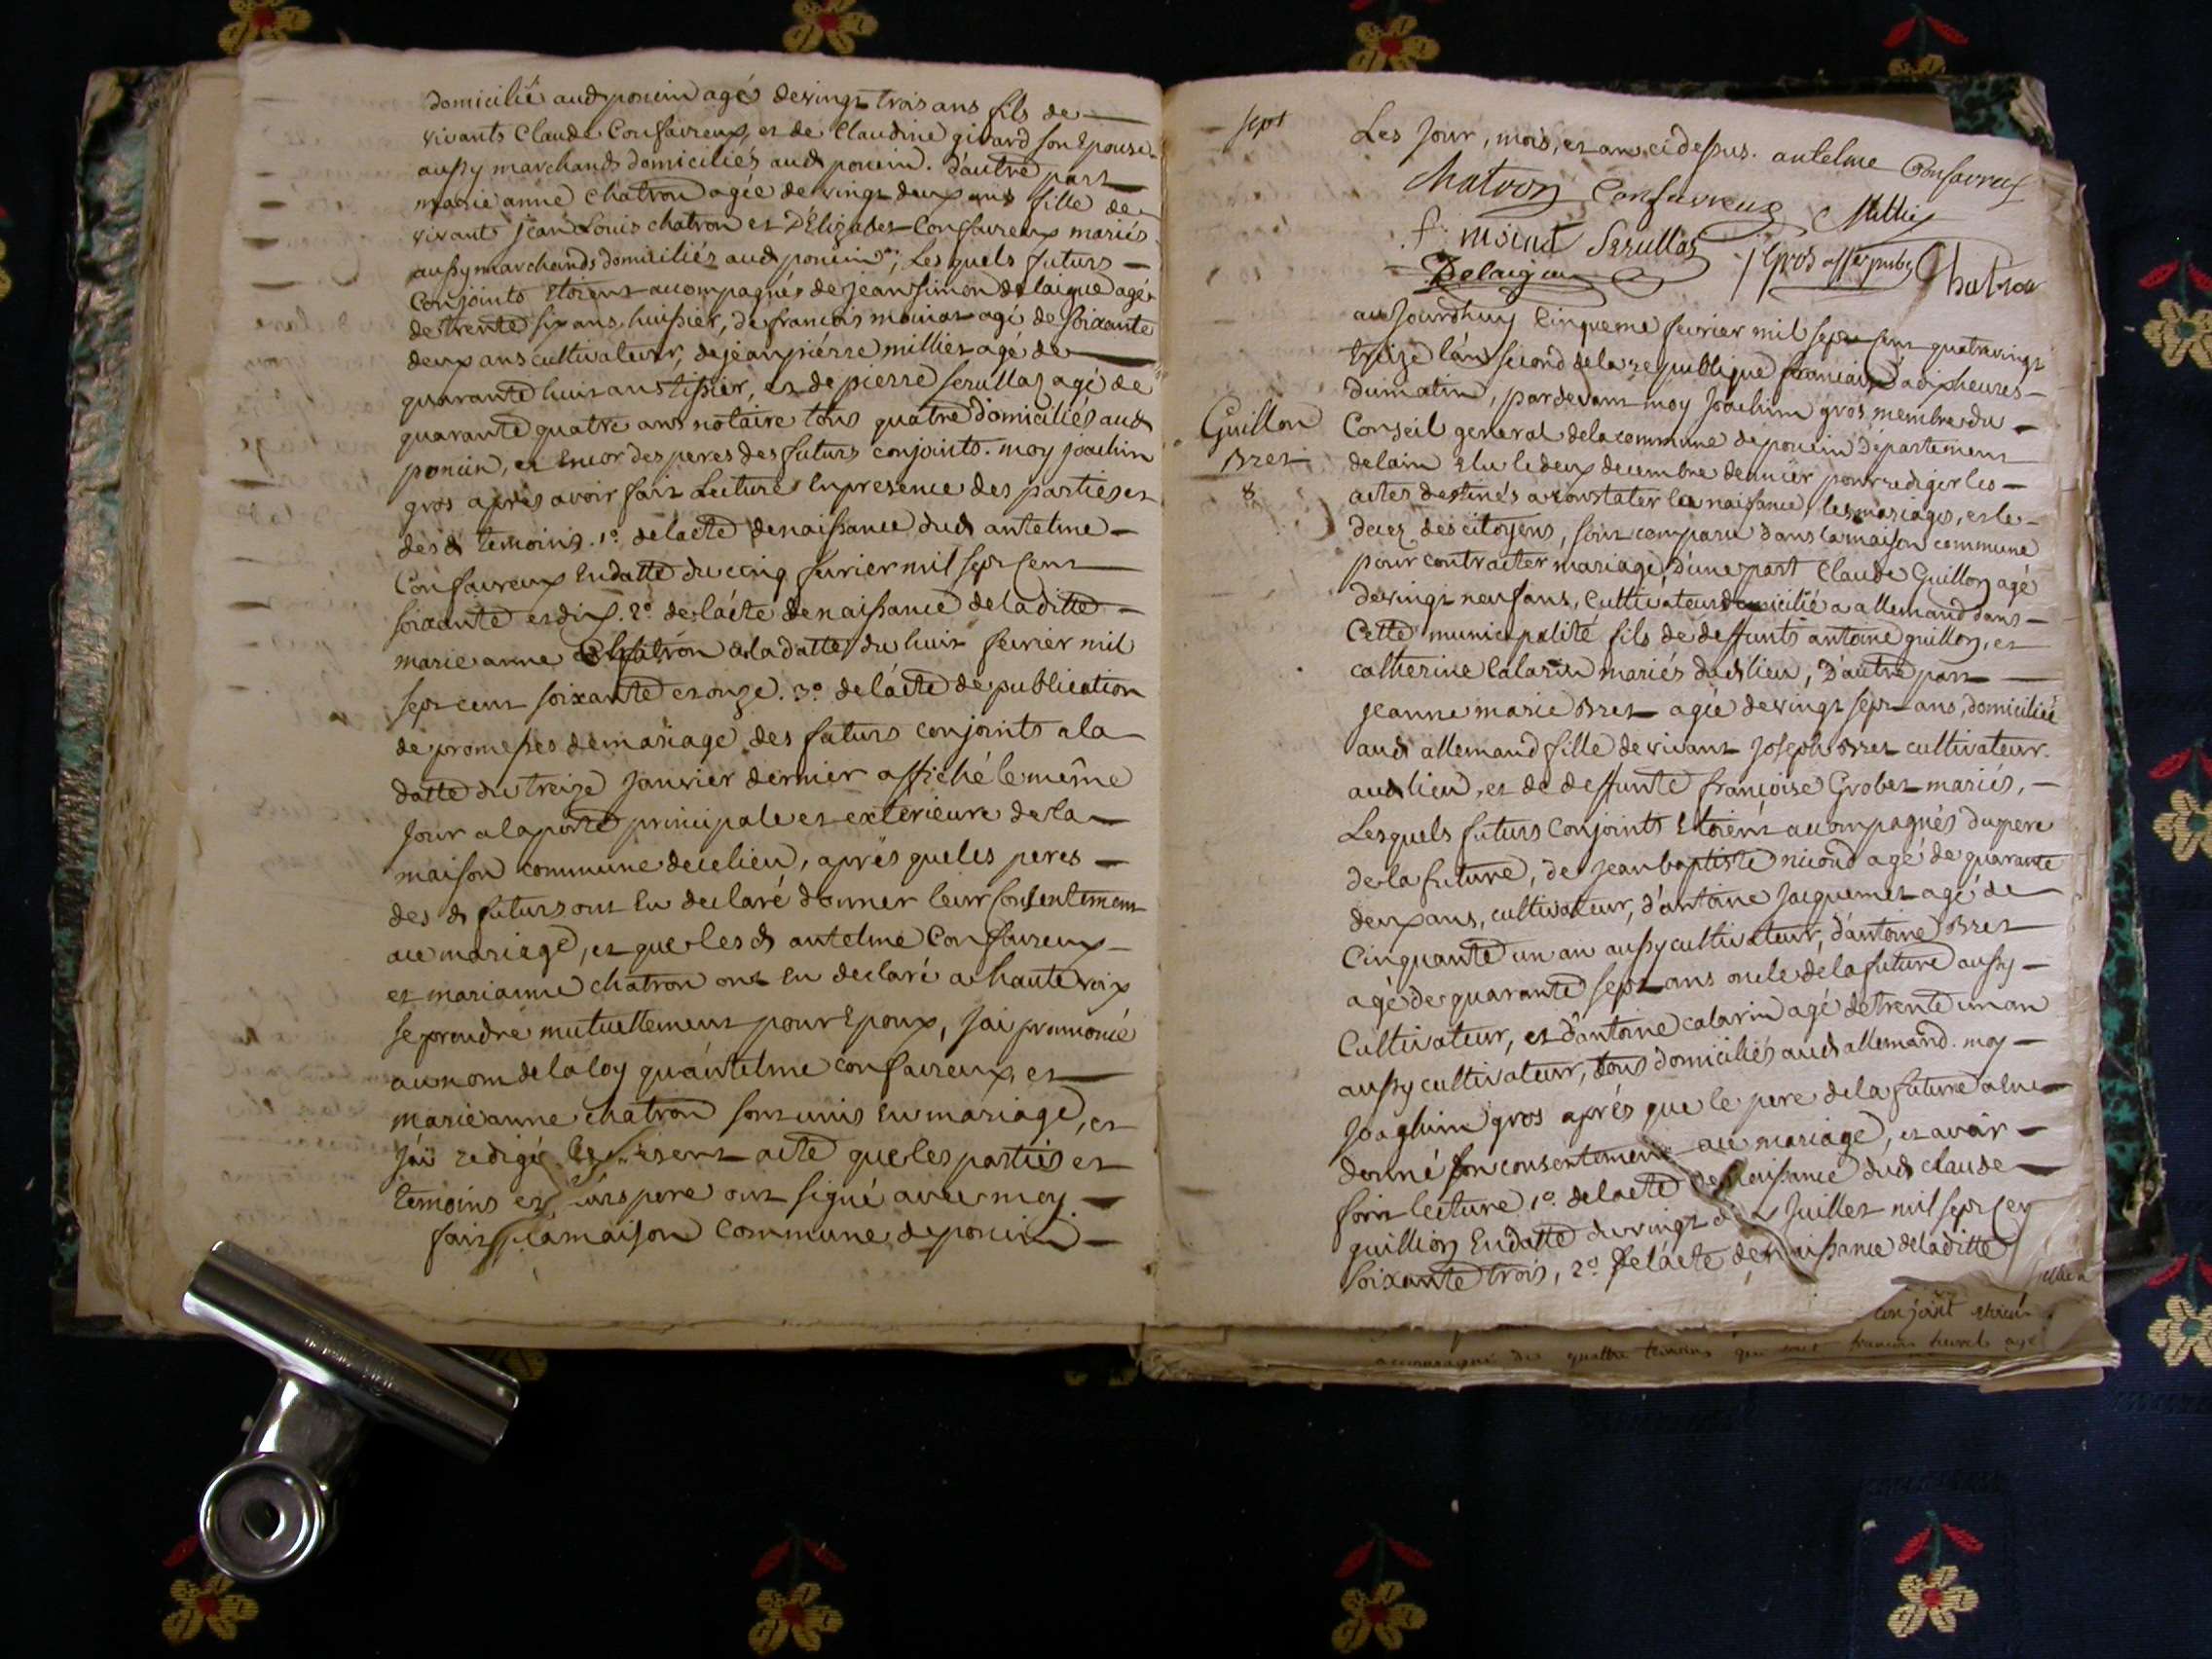 domicilié aud poncin agé de vingt trois ans fils de
vivants Claude Confavreux, et de Claudine givard son Epouse
aussy marchands domiciliés aud poncin. d'autre part
marie anne chatron agée de vingt deux ans fille de
vivants jean Louis chatron et d'Elizabet Confavreux mariés
aussy marchands domiciliés aud poncin, Lesquels futurs
Conjoints Etoient accompagnés de jean simon delaigue agé
de trente six ans huissier, de françois moinat agé de soixante
deux ans cultivateur, de jean piérre milliet agé de
quarante huit ans tissier, et de pierre serullaz agé de
quarante quatre ans notaire tous quatre domiciliés aud
poncin, et Encor des peres des futurs conjoints. moy joachim
gros après avoir fait Lecture En presence des parties et
des d temoins. 1º de lacte de naissance dud antelme
Confavreux En datte du cinq fevrier mil sept cent
soixante et dix. 2º de lácte de naissance de laditte
marie anne Chatrón a la datte du huit fevrier mil
sept cent soixante et onze. 3º de lácte de publication
de promesses de mariage des futurs conjoints a la
datte du treize janvier dernier affiché le même
jour a la porte principale et exterieure de la
maison commune de ce lieu, après que les peres
des d futurs ont Eu declaré donner leur consentement
au mariage, et que les d antelme Confavreux
et marianne chatron ont Eu declaré a haute voix
se prendre mutuellement pour Epoux, j'ai prononcé
au nom de la loy qu'antelme confavreux, et
marie anne chatron sont unis En mariage, et
j'ai redigé le present acte que les parties et
temoins et leurs pere ont signé avec moy.
fait a la maison Commune de poncin
sept
Les jour, mois, et an ci dessus. antelme Confavreux
Chatron Confavreux Milliet
f. moinat Serullaz
Delaigue J Gros off. publ. Chatron
Guillon
Bret
8
aujourdhuy Cinqueme fevrier mil sept cent quatrevingt
treize l'an second de la republique francaise a dix heures
du matin, pardevant moy Joachim gros membre du
Conseil general de la commune de poncin département
de lain Elu le deux decembre dernier pour rediger les
actes destinés a constater la naissance, les mariages, et le
decez des citoyens, sont comparu dans la maison commune
pour contracter mariage, d'une part Claude Guillon agé
de vingt neuf ans, Cultivateur domicilié a allemand dans
Cette municipalité fils de deffunts antoine guillon, et
catherine Calarin mariés dud lieu, d'autre part
jeanne marie Bret agée de vingt sept ans, domiciliée
aud allemand fille de vivant Joseph Bret cultivateur
aud lieu, et de deffunte françoise Grobet mariés,
Lesquels futurs Conjoints Etoient accompagnés du pere
de la future, de jean baptiste nicoud agé de quarante
deux ans, cultivateur, d'antoine jacquemet agé de
Cinquante un an aussy cultivateur, d'antoine Bret
agé de quarante sept ans oncle de la future aussy
Cultivateur, et d'antoine calarin agé de trente un an
aussy cultivateur, tous domiciliés aud allemand. moy
Joaghim gros après que le pere de la future a Eu
donné son consentement au mariage, et avoir
fait lecture 1º de lacte de naissance dud claude
guillion En datte du vingt juillet mil sept cent
soixante trois, 2º de lácte de naissance de laditte
conjoint
accompagné de quattre temoins qui sont francois agé